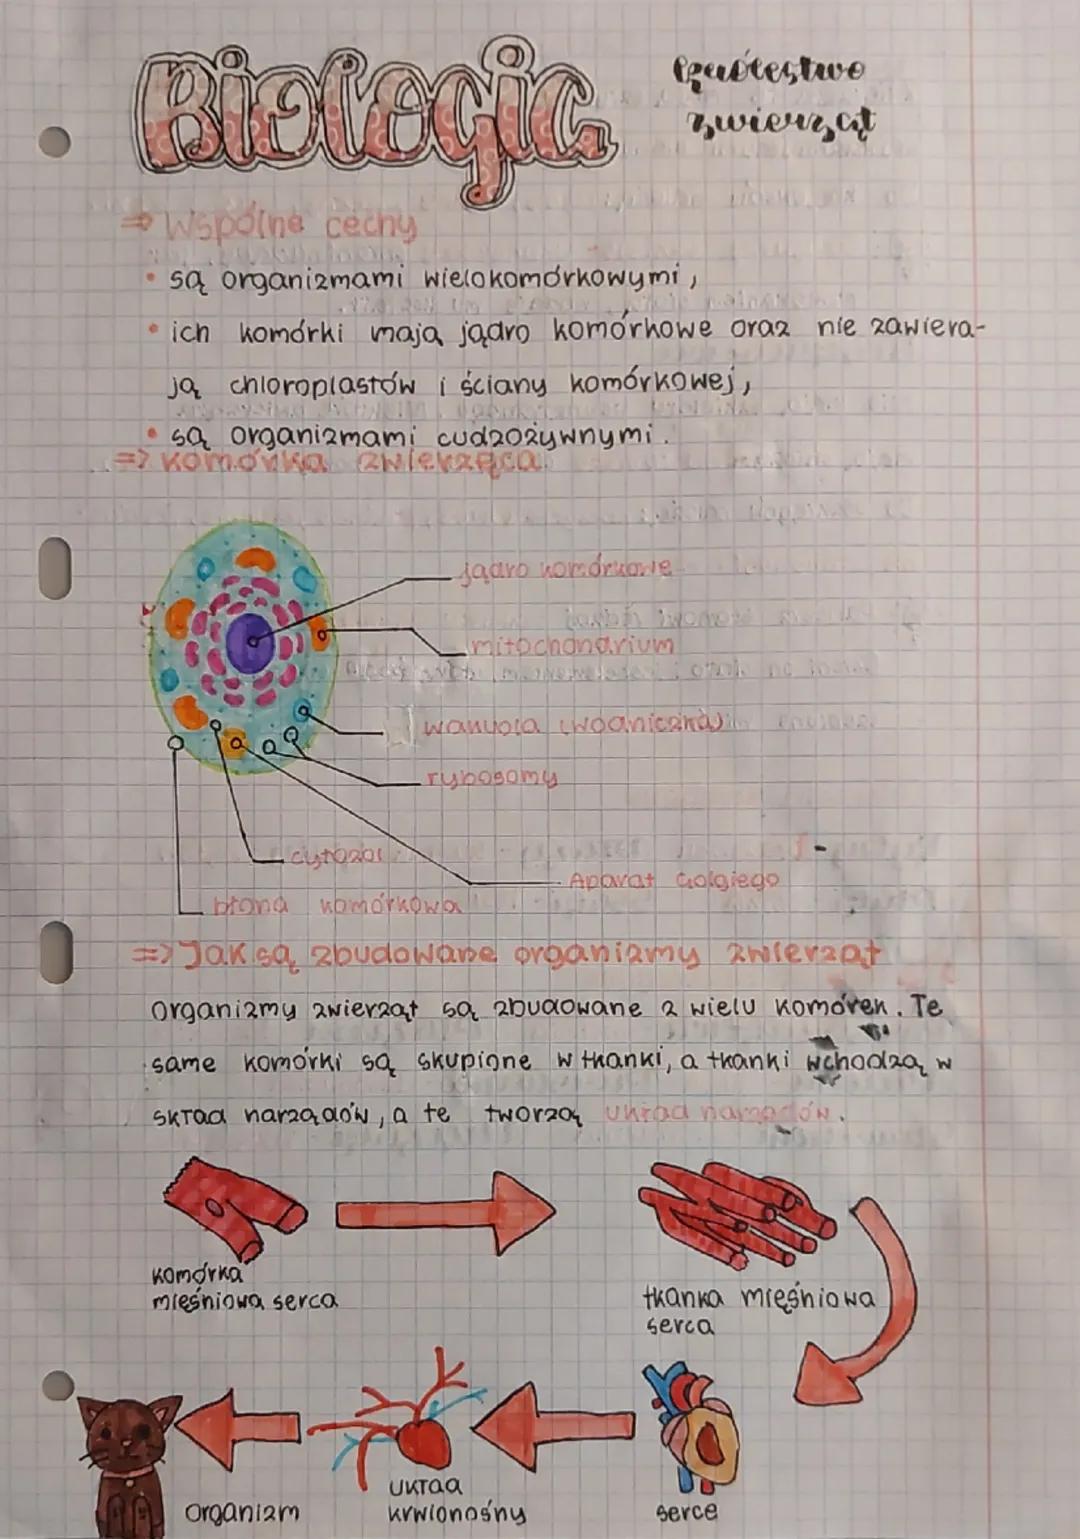 Biologia
królestwo
zwierząt
=> Wspólne cechy
• są organizmami wielokomórkowymi,
• ich komórki mają jądro komórkowe oraz nie zawiera-
ją chloroplastów i ściany komórkowej,
• są organizmami cudzożywnymi.
=> komórka zwierzęca
jądro komórkowe
mitochondrium
wakuola (wodniczka)
rybosomy
cytozol
Aparat Golgiego
błona komórkowa
=> Jak są zbudowane organizmy zwierząt
Organizmy zwierząt są zbudowane z wielu komórek. Te
same komórki są skupione w tkanki, a tkanki wchodzą w
skład narządów, a te tworzą układ narządów.
komórka
mięśniowa serca
tkanka mięśniowa
serca
organizm
układ
krwionośny
serce